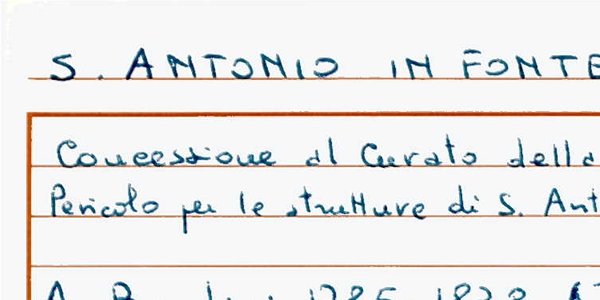 S. ANTONIO IN FONTE
Concessione al Curato della
Pericolo per le strutture di S. Ant
1785 1828